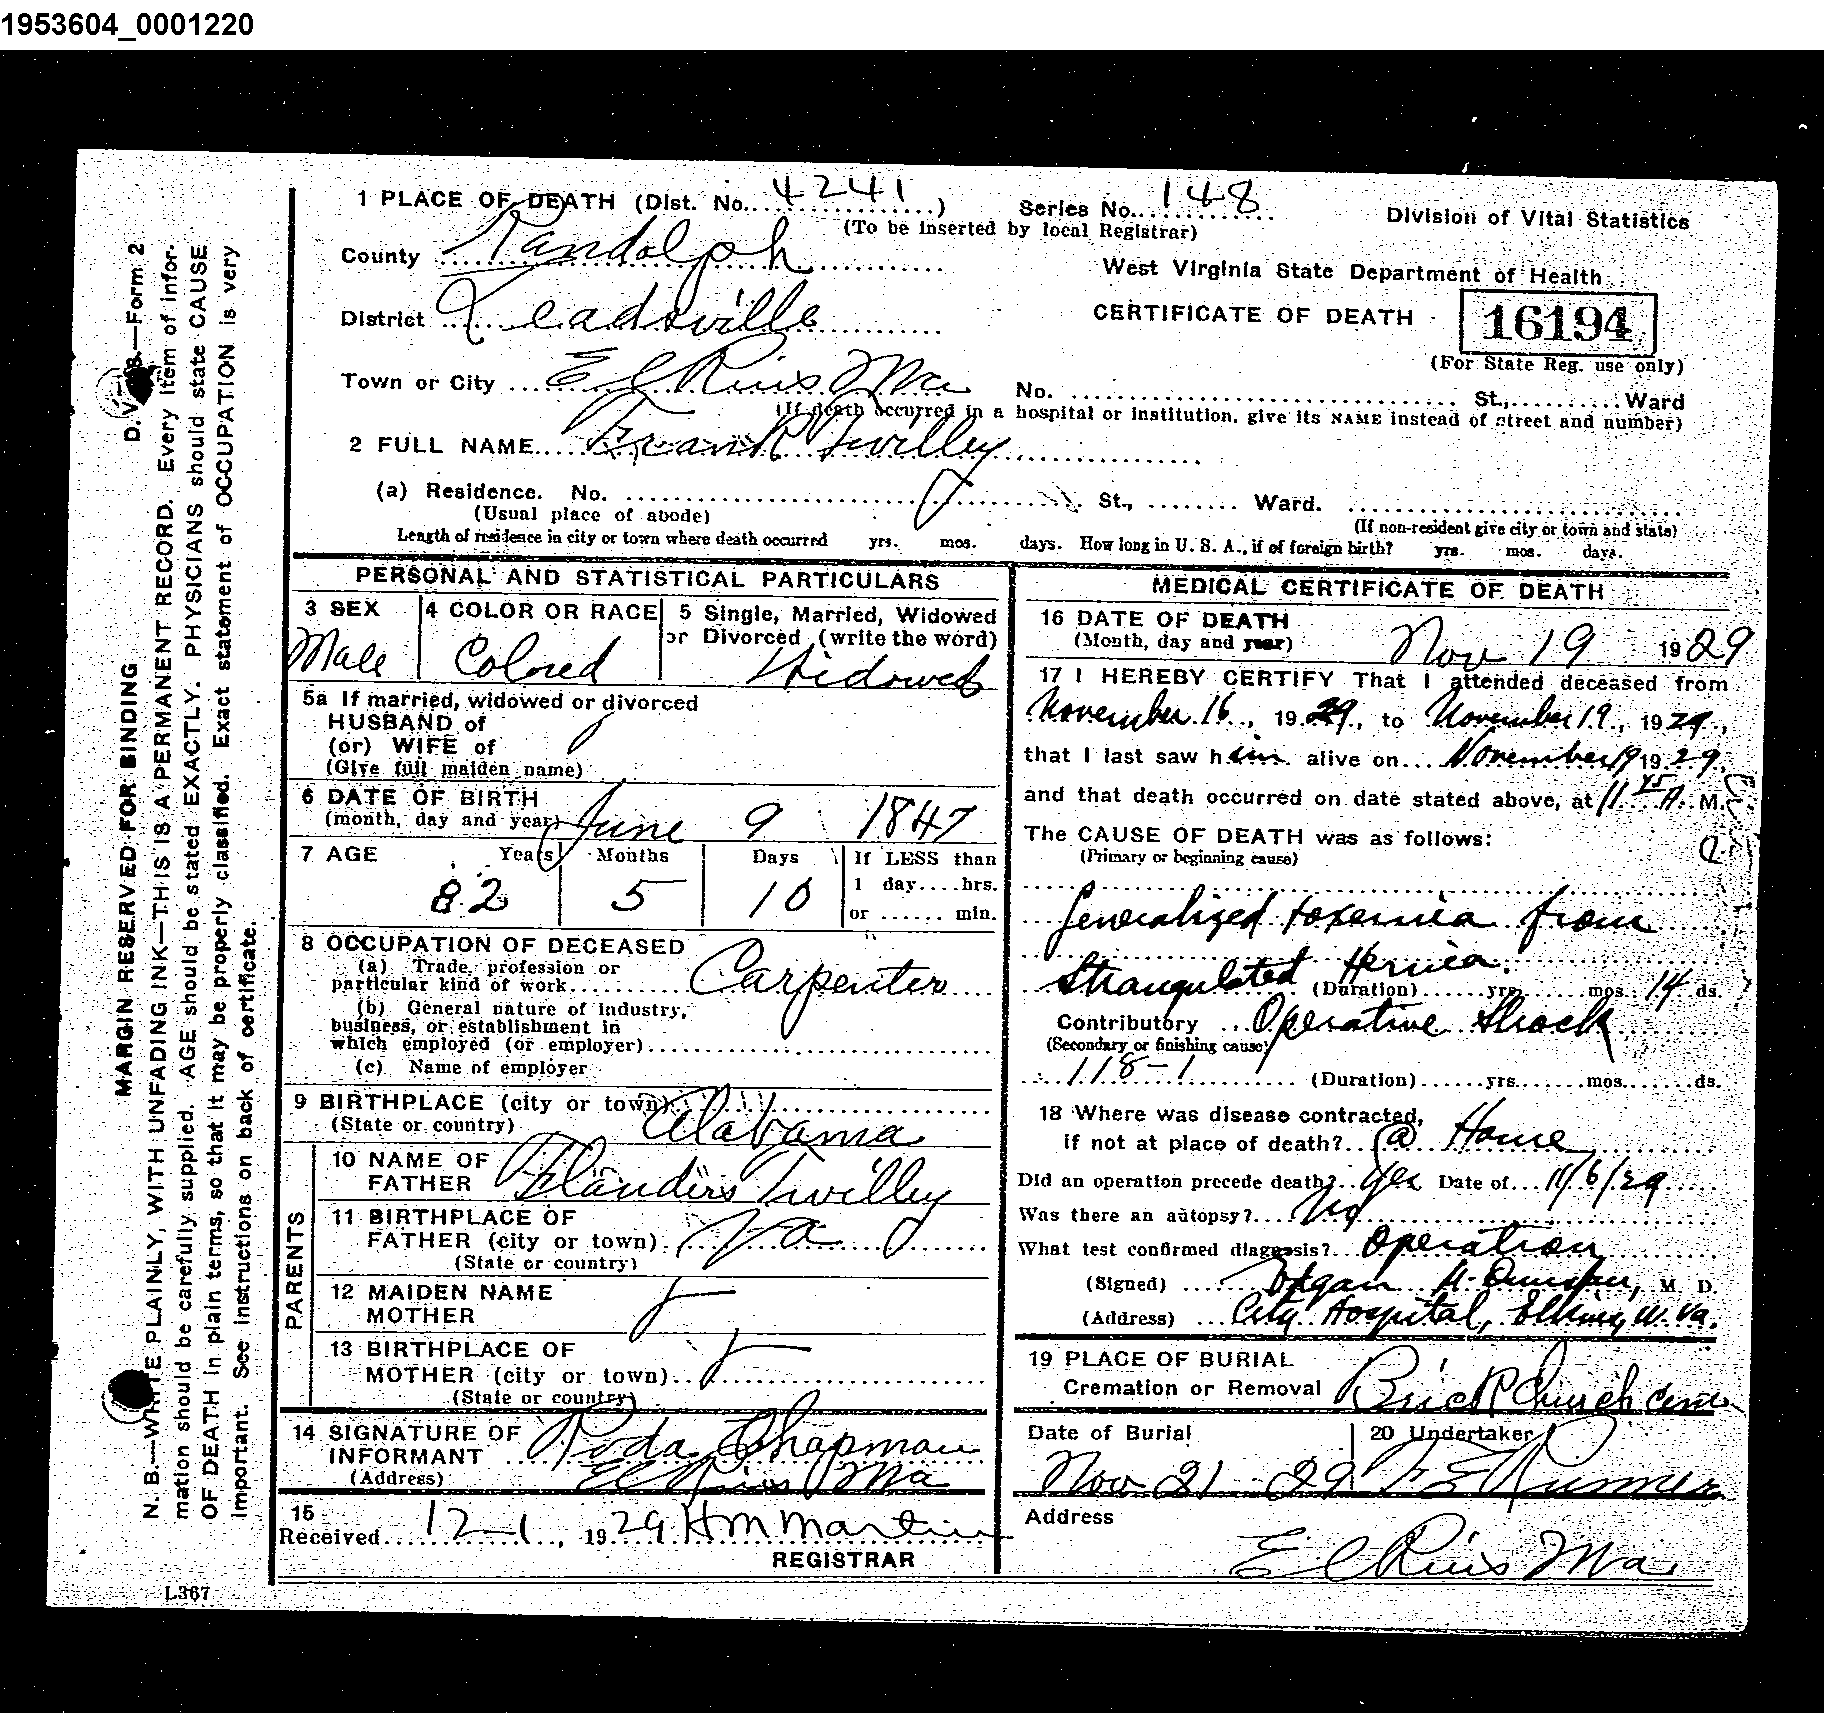 1953604_0001220
1 PLACE OF DEATH (Dist. No. 4241) Series No. 148
(To be inserted by local Registrar)
Division of Vital Statistics
County Randolph
West Virginia State Department of Health
District Leadsville
CERTIFICATE OF DEATH 16194
(For State Reg. use only)
Town or City Elkins Wva No. St., Ward
(If death occurred in a hospital or institution, give its NAME instead of street and number)
2 FULL NAME Frank Twilley
(a) Residence. No. St., Ward.
(Usual place of abode) (If non-resident give city or town and state)
Length of residence in city or town where death occurred yrs. mos. days. How long in U. S. A., if of foreign birth? yrs. mos. days.
PERSONAL AND STATISTICAL PARTICULARS
3 SEX 4 COLOR OR RACE 5 Single, Married, Widowed
or Divorced (write the word)
Male Colored Widowed
5a If married, widowed or divorced
HUSBAND of
(or) WIFE of
(Give full maiden name)
6 DATE OF BIRTH
(month, day and year) June 9 1847
7 AGE Years Months Days If LESS than
1 day....hrs.
82 5 10
or ...... min.
8 OCCUPATION OF DECEASED
(a) Trade, profession or
particular kind of work Carpenter
(b) General nature of industry,
business, or establishment in
which employed (or employer)
(c) Name of employer
9 BIRTHPLACE (city or town)
(State or country) Alabama
PARENTS
10 NAME OF
FATHER Flanders Twilley
11 BIRTHPLACE OF
FATHER (city or town) Va
(State or country)
12 MAIDEN NAME
MOTHER
13 BIRTHPLACE OF
MOTHER (city or town)
(State or country)
14 SIGNATURE OF
INFORMANT Roda Chapman
(Address) Elkins Wva
15
Received 12-1, 1929 HM Martin
REGISTRAR
MEDICAL CERTIFICATE OF DEATH
16 DATE OF DEATH
(Month, day and year) Nov 19 1929
17 I HEREBY CERTIFY That I attended deceased from
November 16, 1929, to November 19, 1929,
that I last saw him alive on November 19 1929,
and that death occurred on date stated above, at 11 45 A. M.
The CAUSE OF DEATH was as follows:
(Primary or beginning cause)
Generalized toxemia from
Strangulated Hernia.
(Duration) yrs. mos. 14 ds.
Contributory Operative Shock
(Secondary or finishing cause)
118-1 (Duration) yrs. mos. ds.
18 Where was disease contracted,
if not at place of death? @ Home
Did an operation precede death? Yes Date of 11/6/29
Was there an autopsy? No
What test confirmed diagnosis? Operation
(Signed) H. M. D.
(Address) City Hospital, Elkins, W. Va.
19 PLACE OF BURIAL
Cremation or Removal Brick Church Cem
Date of Burial 20 Undertaker
Nov 21 29 F E Runner
Address
Elkins Wva
MARGIN RESERVED FOR BINDING D. V. S.—Form 2
N. B.—WRITE PLAINLY, WITH UNFADING INK—THIS IS A PERMANENT RECORD. Every item of infor-
mation should be carefully supplied. AGE should be stated EXACTLY. PHYSICIANS should state CAUSE
OF DEATH in plain terms, so that it may be properly classified. Exact statement of OCCUPATION is very
important. See instructions on back of certificate.
L367